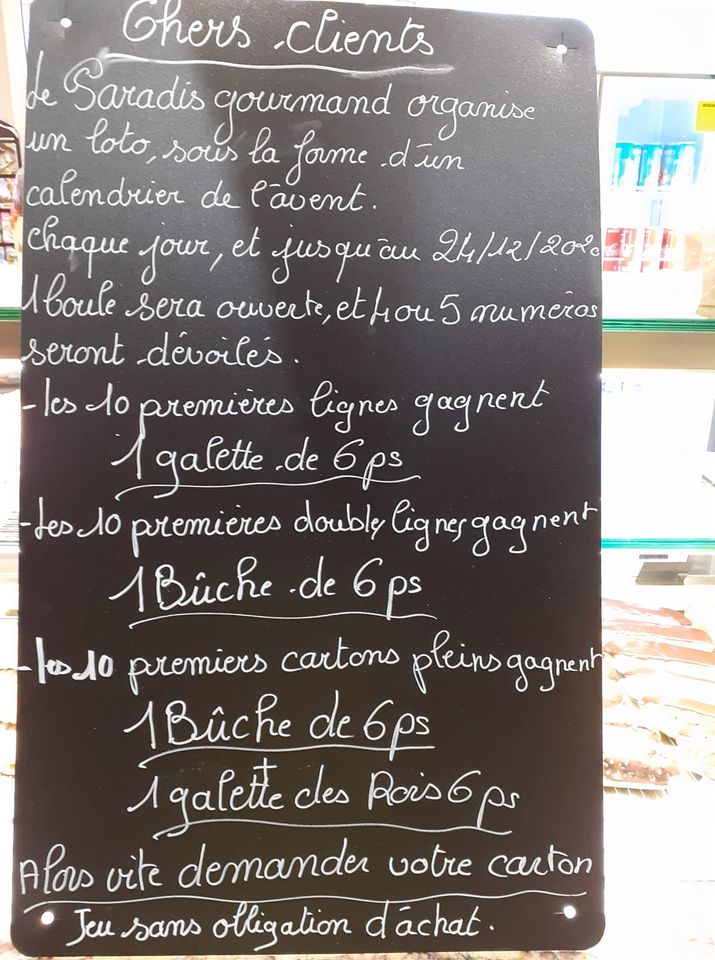 Chers clients
Le Paradis gourmand organise
un loto, sous la forme d'un
calendrier de l'avent.
chaque jour, et jusqu'au 24/12/2020
1 boule sera ouverte, et 4 ou 5 numéros
seront dévoilés.
- les 10 premières lignes gagnent
1 galette de 6 ps
- Les 10 premières double lignes gagnent
1 Bûche de 6 ps
- les 10 premiers cartons pleins gagnent
1 Bûche de 6 ps
+
1 galette des Rois 6 ps
Alors vite demander votre carton
Jeu sans obligation d'achat.